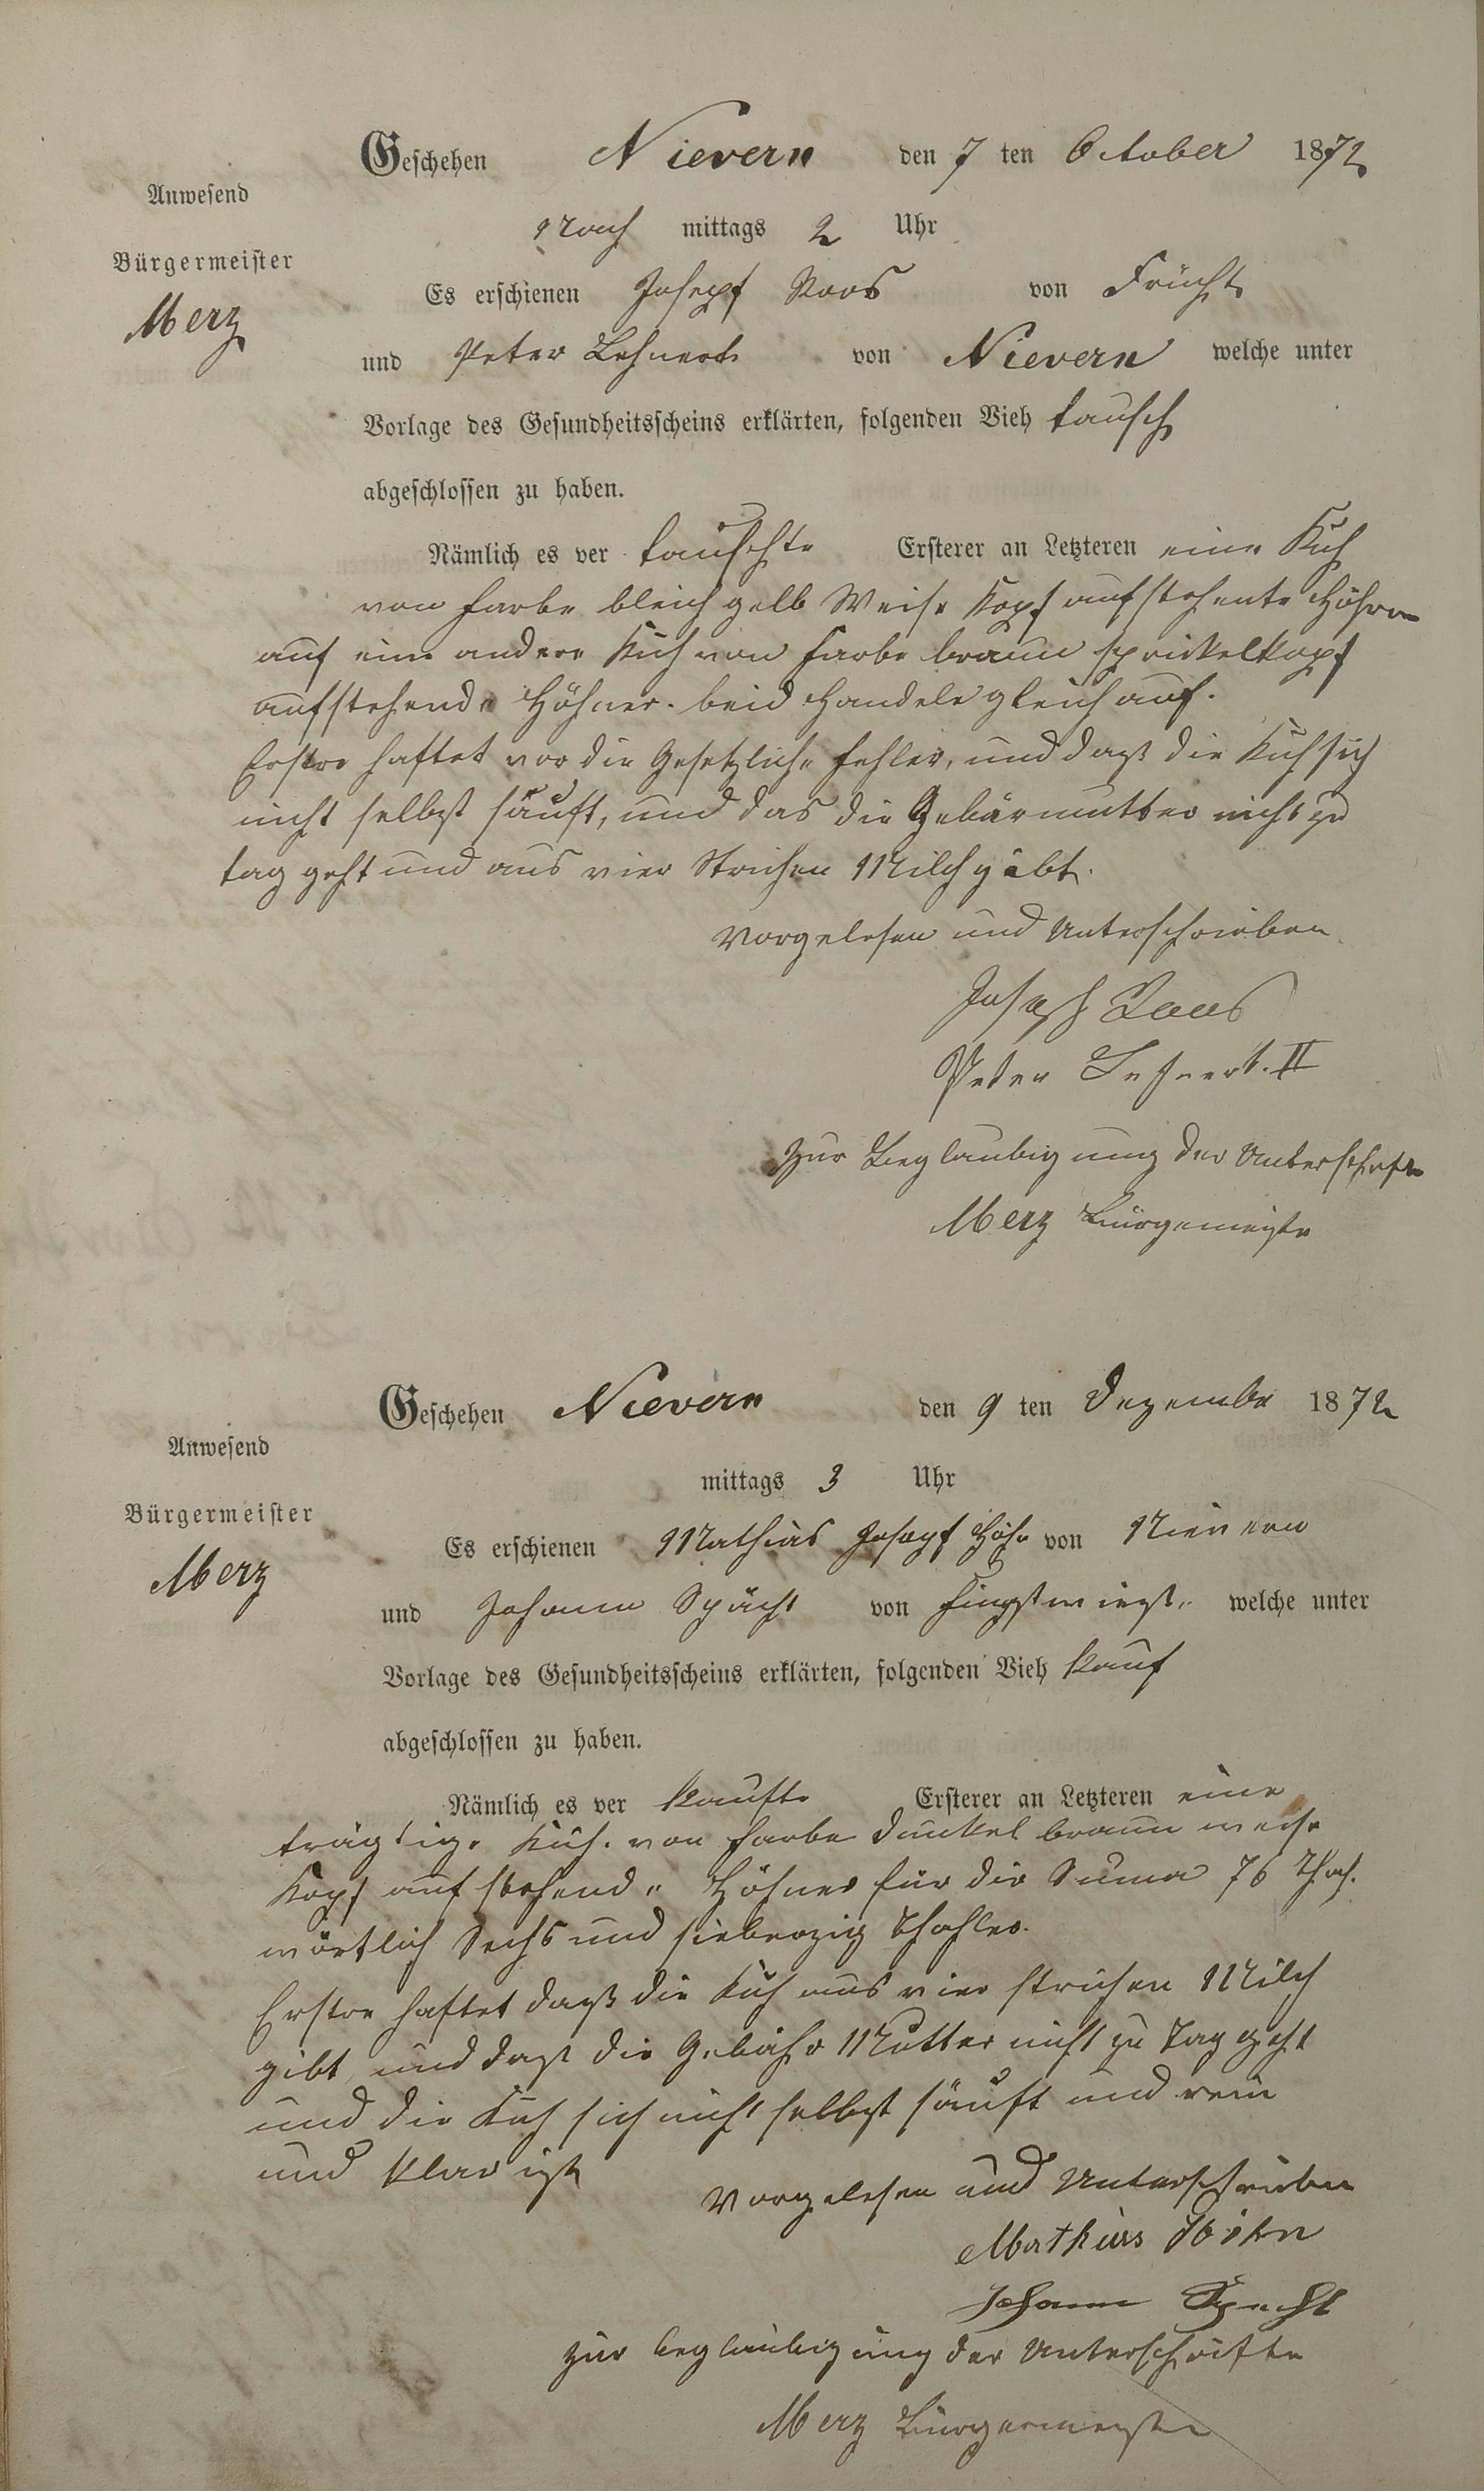 Geschehen Nievern den 7 ten October 1872
Anwesend
Nach mittags 2 Uhr
Bürgermeister
Es erschienen Josepf Roos von Frücht
Merz
und Peter Lehnert von Nievern welche unter
Vorlage des Gesundheitsscheins erklärten, folgenden Vieh tausch
abgeschlossen zu haben.
Nämlich es ver tauschte Ersterer an Letzteren eine Kuh
von farbe bleich gelb Weise Kopf aufstehente Höhrn
auf eine andere Kuh von farbe braun sprickelkopf
aufstehende Höhner. beid Handele gleich auf.
Erstre haftet vor die Gesetzliche fehler, und daß die Kuh sich
nicht selbst säuft, und das die Gebärmutter nicht zu
tag geht und aus vier Strichen Milch gibt.
Vorgelesen und Unterschrieben
Joseph Roos
Peter Lehnert. II
Zur Beglaubigung der Unterschrifte
Merz Bürgemeiste
Geschehen Nievern den 9 ten Dezembe 1872
Anwesend
mittags 3 Uhr
Bürgermeister
Es erschienen Mathias Josepf Höhn von Nievern
Merz
und Johann Spächt von welche unter
Vorlage des Gesundheitsscheins erklärten, folgenden Vieh kauf
abgeschlossen zu haben.
Nämlich es ver kaufte Ersterer an Letzteren eine
trägtige Kuh. von farbe dunkel braun weise
Kopf aufstehende Höhner für die Suma 76 Thah.
wörtlich Sechs und siebenzig Thahler.
Erstre haftet daß die Kuh aus vier strichen Milch
gibt, und daß die Gebähr Mutter nicht zu Tag geht
und die Kuh sich nicht selbst säuft und rein
und klar ist
Vorgelesen und Unterschrieben
Mathias Höhn
Johann Specht
zur beglaubigung der Unterschrifte
Merz Bürgermeister